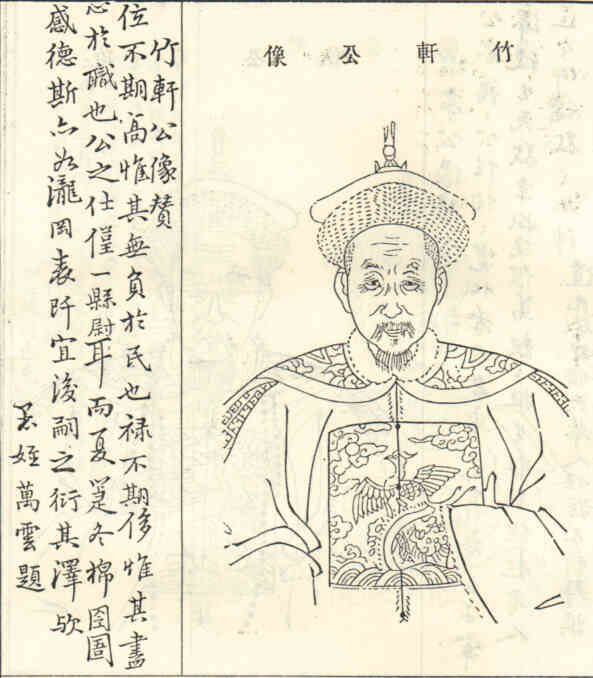 竹軒公像
竹軒公像贊
位不期高惟其無負於民也祿不期侈惟其盡
於職也公之仕僅一縣尉耳而夏箑冬棉囹圄
感德斯亦如瀧岡表阡宜後嗣之衍其澤歟
愚姪萬雲題